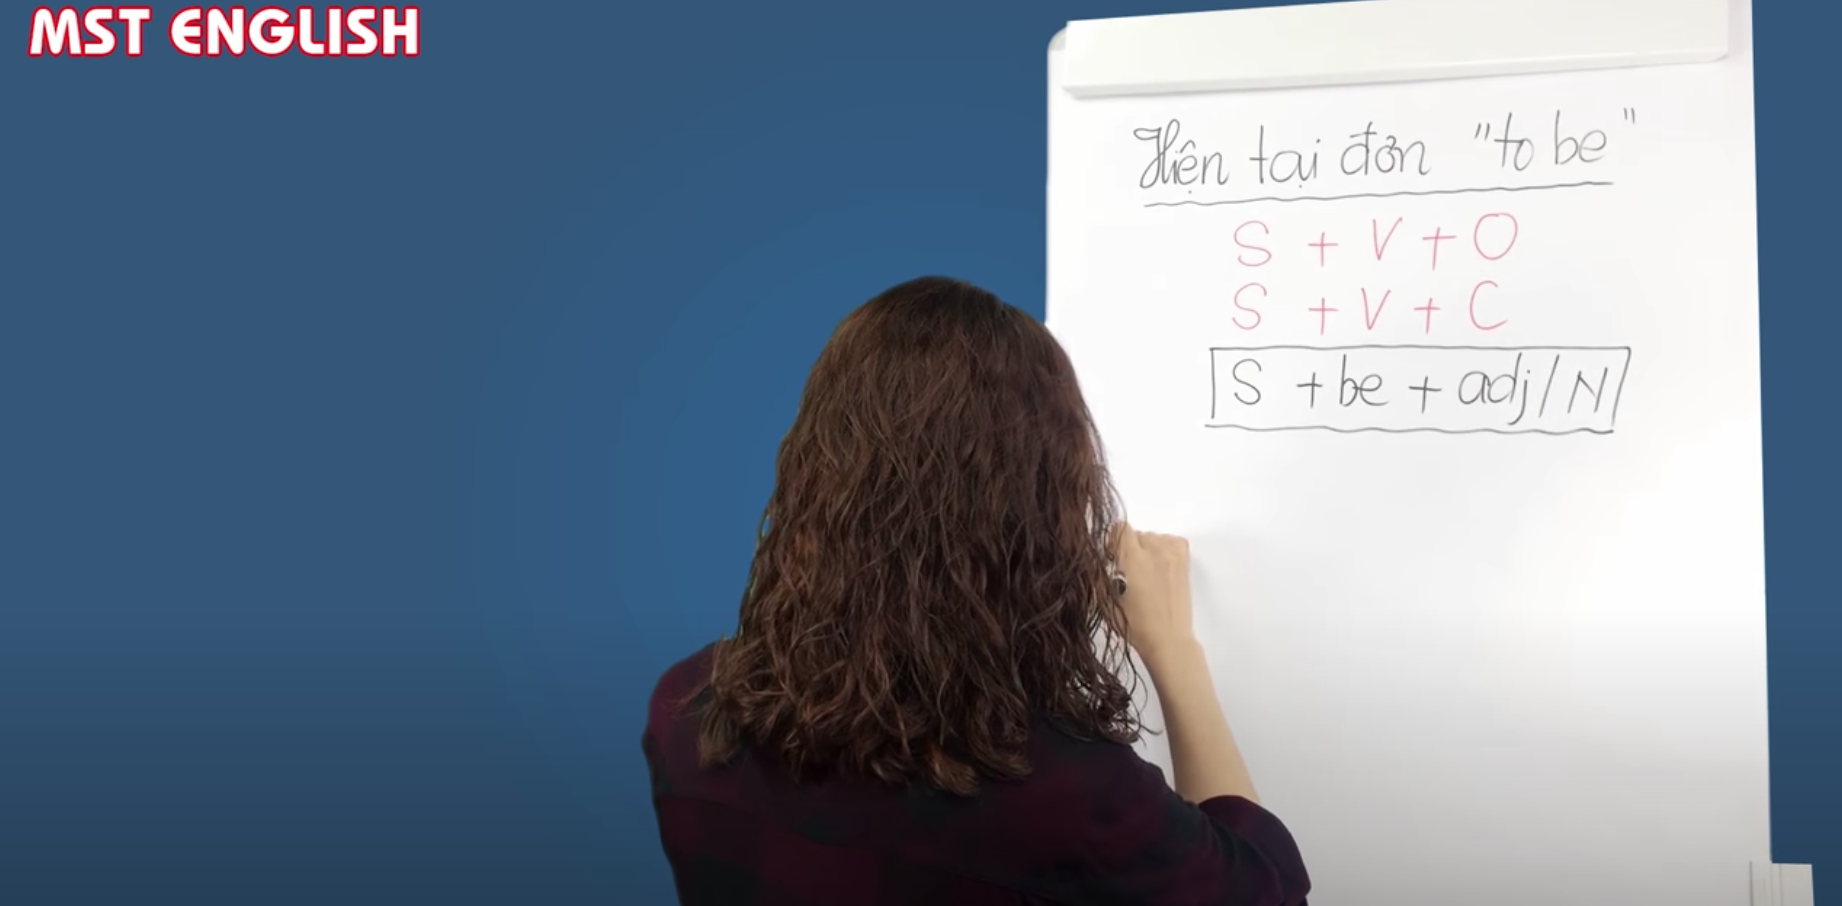 MST ENGLISH
Hiện tại đơn "to be"
S + V + O
S + V + C
S + be + adj/N